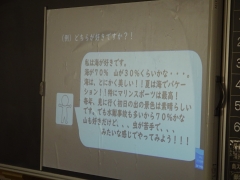 (例)どちらが好きですか?!
私は海が好きです。
海が70% 山が30%くらいかな・・・。
海は、とにかく美しい!!夏は海でバケー
ション!!特にマリンスポーツは最高!
毎年、夏に行く朝日の出の景色は素晴らしい
です。でも水難事故も多いから70%かな
山も好きだけど、、、虫が苦手で、、、
みたいな感じでやってみよう!!!